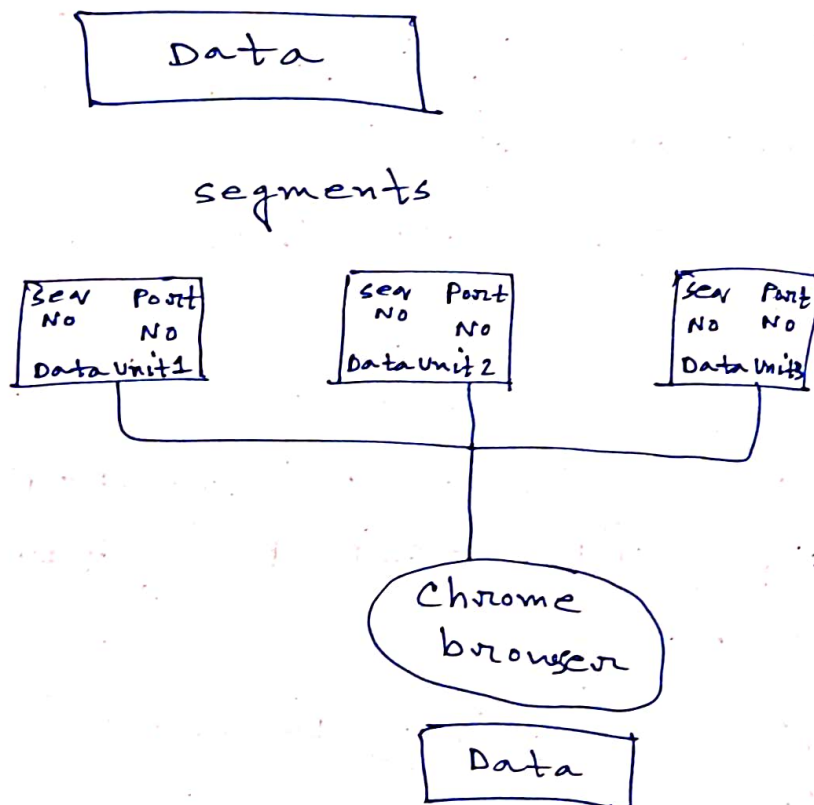 Data
segments
Seq Port
No No
Data Unit1
Seq Port
No No
Data Unit 2
Seq Port
No No
Data Unit3
Chrome
browser
Data